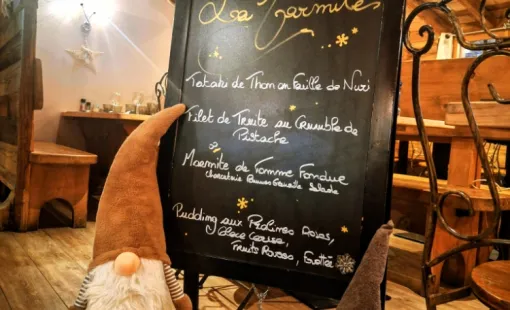 Les Fermiles
Tataki de Thon en feuille de Nori
Filet de Truite au Crumble de
Pistache
Marmite de Tomme Fondue
Charcuterie Pommes Grenaille Salade
Pudding aux Pralines Roses,
glace
Fruits Rouges,